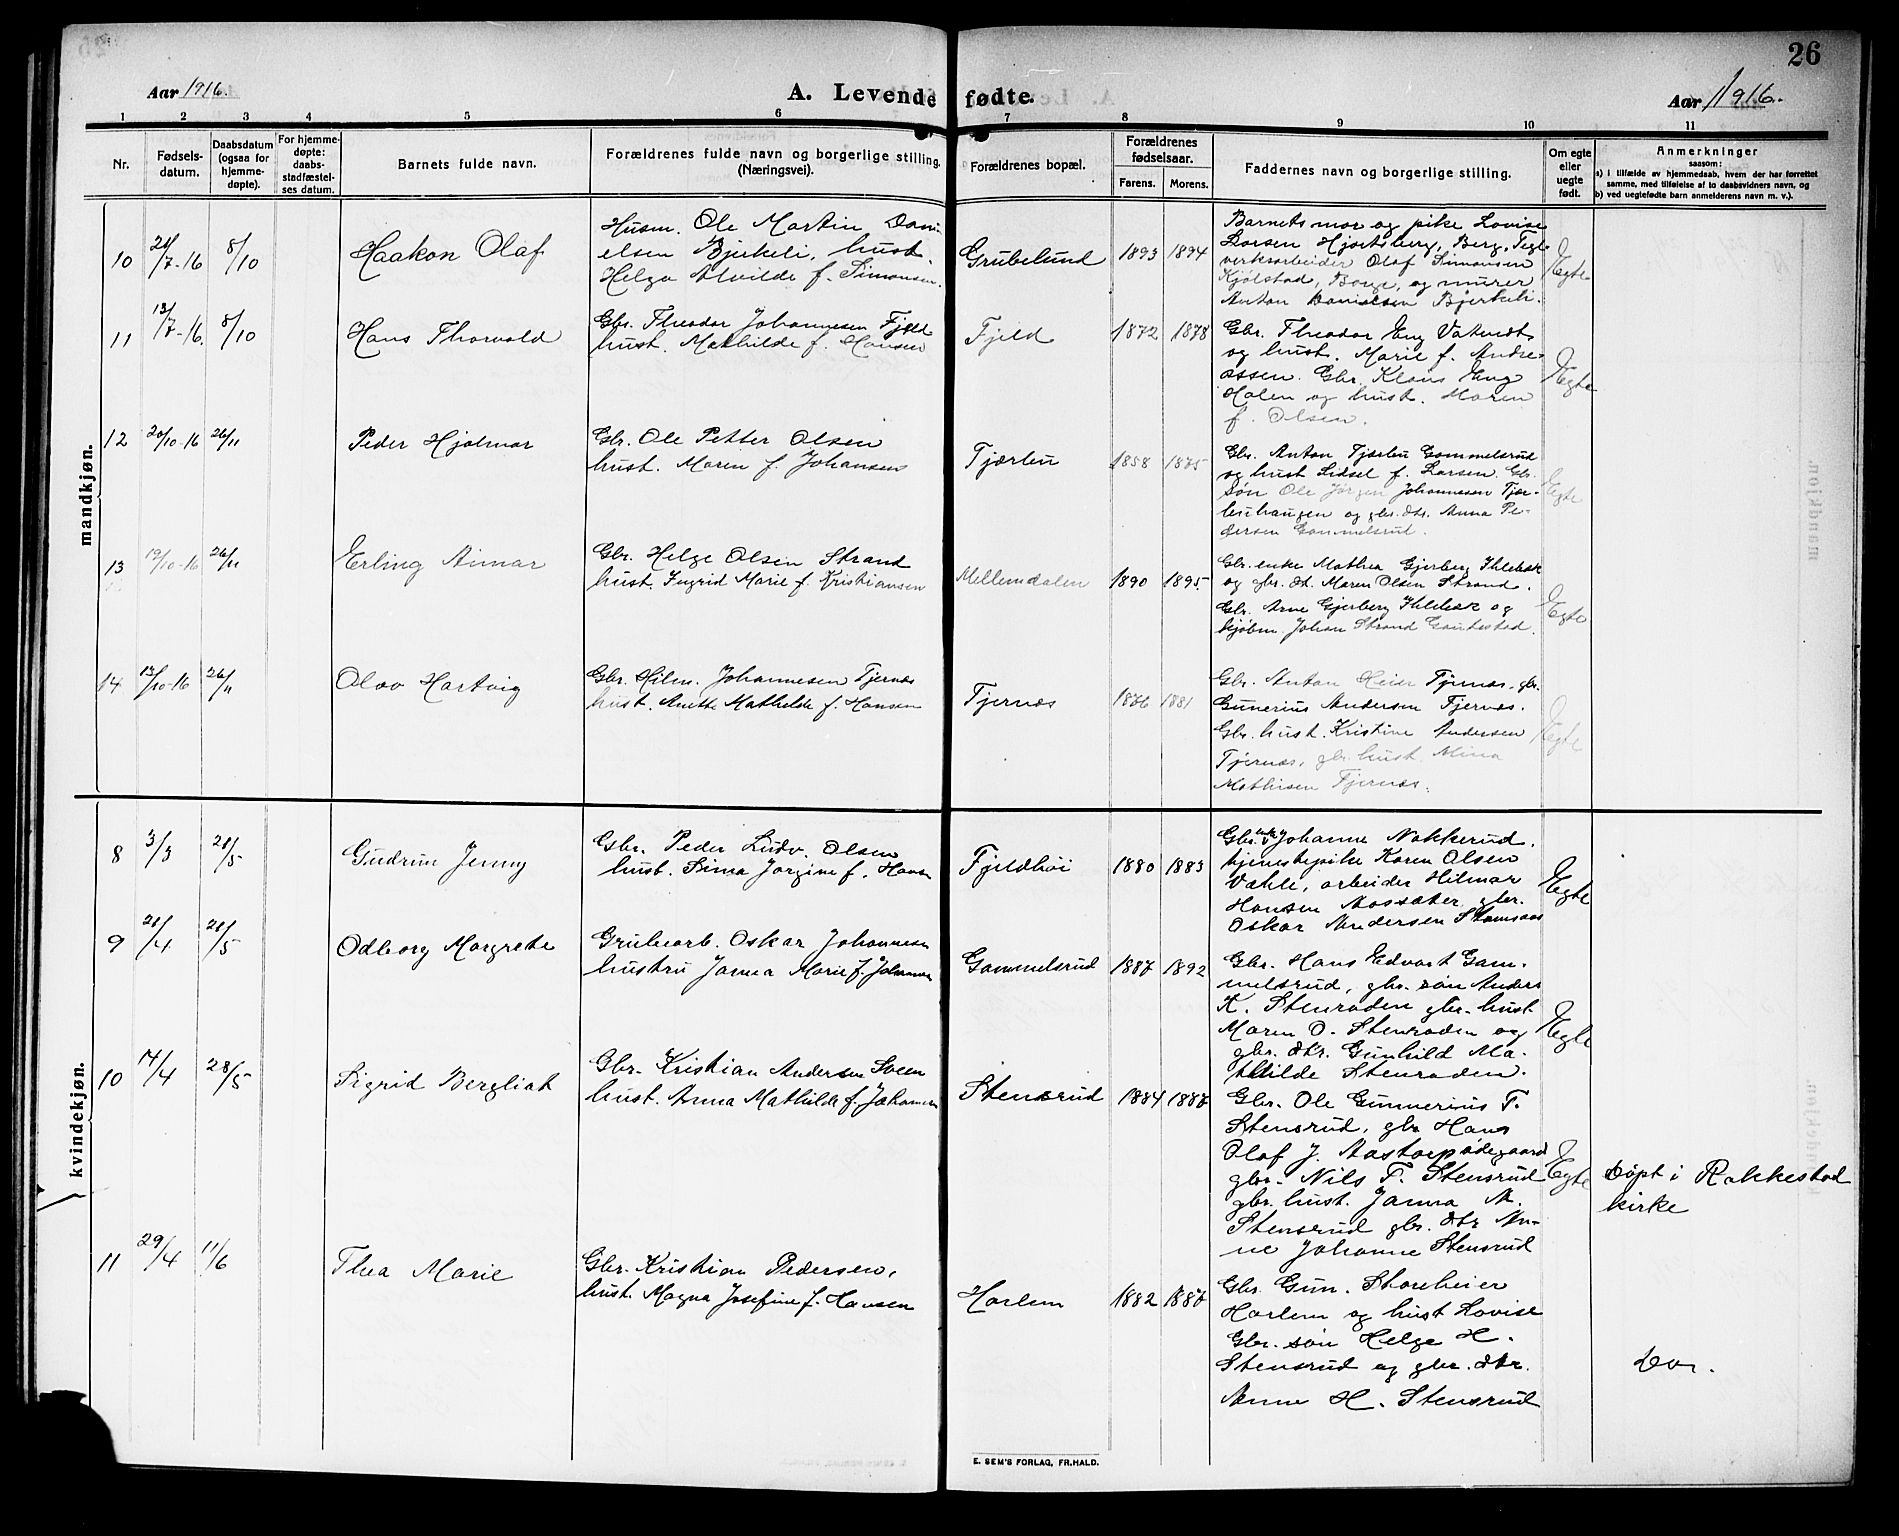 26
Aar 1916.
A. Levende fødte.
Aar 1916.
1 2 3 4 5 6 7 8 9 10 11
Nr.
Fødsels-
datum.
Daabsdatum
(ogsaa for
hjemme-
døpte).
For hjemme-
døpte:
daabs-
stadfæstel-
ses datum.
Barnets fulde navn.
Forældrenes fulde navn og borgerlige stilling.
(Næringsvei).
Forældrenes bopæl.
Forældrenes
fødselsaar.
Farens. Morens.
Faddernes navn og borgerlige stilling.
Om egte
eller
uegte
født.
Anmerkninger
saasom:
a) i tilfælde av hjemmedaab, hvem der har forrettet
samme, med tilføielse af to daabsvidners navn, og
b) ved uegtefødte barn anmelderens navn m. v.).
mandkjøn.
10
21/7-16
8/10
Haakon Olaf
Husm. Ole Martin Dani-
elsen Bjerkeli, hust.
Helga Alvilde f. Simonsen.
Grubelund
1893 1894
Barnets mor og pike Lovise
Larsen Hjortsberg, Berg, Tegl-
verksarbeider Olaf Simonsen
Kjølstad, Borge, og murer
Anton Danielsen Bjerkeli.
Egte
11
13/7-16.
8/10
Hans Thorvald
Gbr. Theodor Johannesen Fjeld
hust. Mathilde f. Hansen
Fjeld
1872 1878
Gbr. Theodor Eng Vatvedt
og hust. Marie f. Andre-
assen. Gbr. Klaus Eng
Holen og hust. Maren
f. Olsen.
Egte
12
20/10-16
26/11
Peder Hjalmar
Gbr. Ole Petter Olsen
hust. Maren f. Johansen
Tjærbu
1858 1875
Gbr. Anton Tjærbu Gammelsrud
og hust Lidsel f. Larsen. Gbr.
søn Ole Jørgen Johannesen Tjær-
buhaugen og gbr. dtr. Anna Pe-
dersen Gammelsrud.
Egte
13
19/10-16
26/11
Erling Aimar
Gbr. Helge Olsen Strand
hust. Ingrid Marie f. Kristiansen
Mellemdalen
1890 1895.
Gbr. enke Mathea Gjerberg Ihlebæk
og gbr. dt. Maren Olsen Strand.
Gbr. Arne Gjerberg Ihlebæk og
kjøbm. Johan Strand Gautestad.
Egte
14
13/10-16
26/11
Olav Hartvig
Gbr. Hilm. Johannesen Tjernæs
hust. Anette Mathilde f. Hansen
Tjernæs
1876 1881
Gbr. Anton Heier Tjernæs, gbr.
Gunerius Andersen Tjernæs.
Gbr. hust. Kristine Andersen
Tjernæs, gbr. hust. Mina
Mathisen Tjernæs.
Egte
kvindekjøn.
8
3/3
21/5
Gudrun Jenny
Gbr. Peder Ludv. Olsen
hust. Sina Jørgine f. Hansen
Fjeldhøi
1880 1883
Gbr. Johanne Nakkerud.
tjenestepike Karen Olsen
Vahle, arbeider Hilmar
Hansen Mossæter gbr.
Oskar Andersen
Egte
9
21/4
21/5
Odborg Margrete
Grubearb. Oskar Johannesen
hustru Janna Marie f. Johansen
Gammelsrud
1887 1892
Gbr. Hans Edvart Gam-
melsrud, gbr. søn Anders
K. Stenraden gbr. hust
Maren O. Stenraden og
gbr. dtr. Gunhild Ma-
thilde Stenraden.
Egte
10
14/4
28/5
Sigrid Bergliot
Gbr. Kristian Andersen Sveen
hust. Anna Mathilde f. Johansen
Stensrud
1884 1887
Gbr. Ole Gunnerius T.
Stensrud, gbr Hans
Olaf J. Aastorpødegaard
gbr. Nils T. Stensrud
gbr. hust. Janna M.
Stensrud gbr. dtr An-
ne Johanne Stensrud
Egte
Døpt i Rakkestad
kirke
11
29/4
11/6
Thea Marie
Gbr. Kristian Pedersen,
hust. Magna Josefine f. Hansen
Harlem
1882 1887
Gbr. Gun. Storeheier
Harlem og hust Lovise
Gbr. søn Helge H.
Stensrud og gbr. dtr.
Anne H. Stensrud
Do.
E. SEM'S FORLAG, FR.HALD.